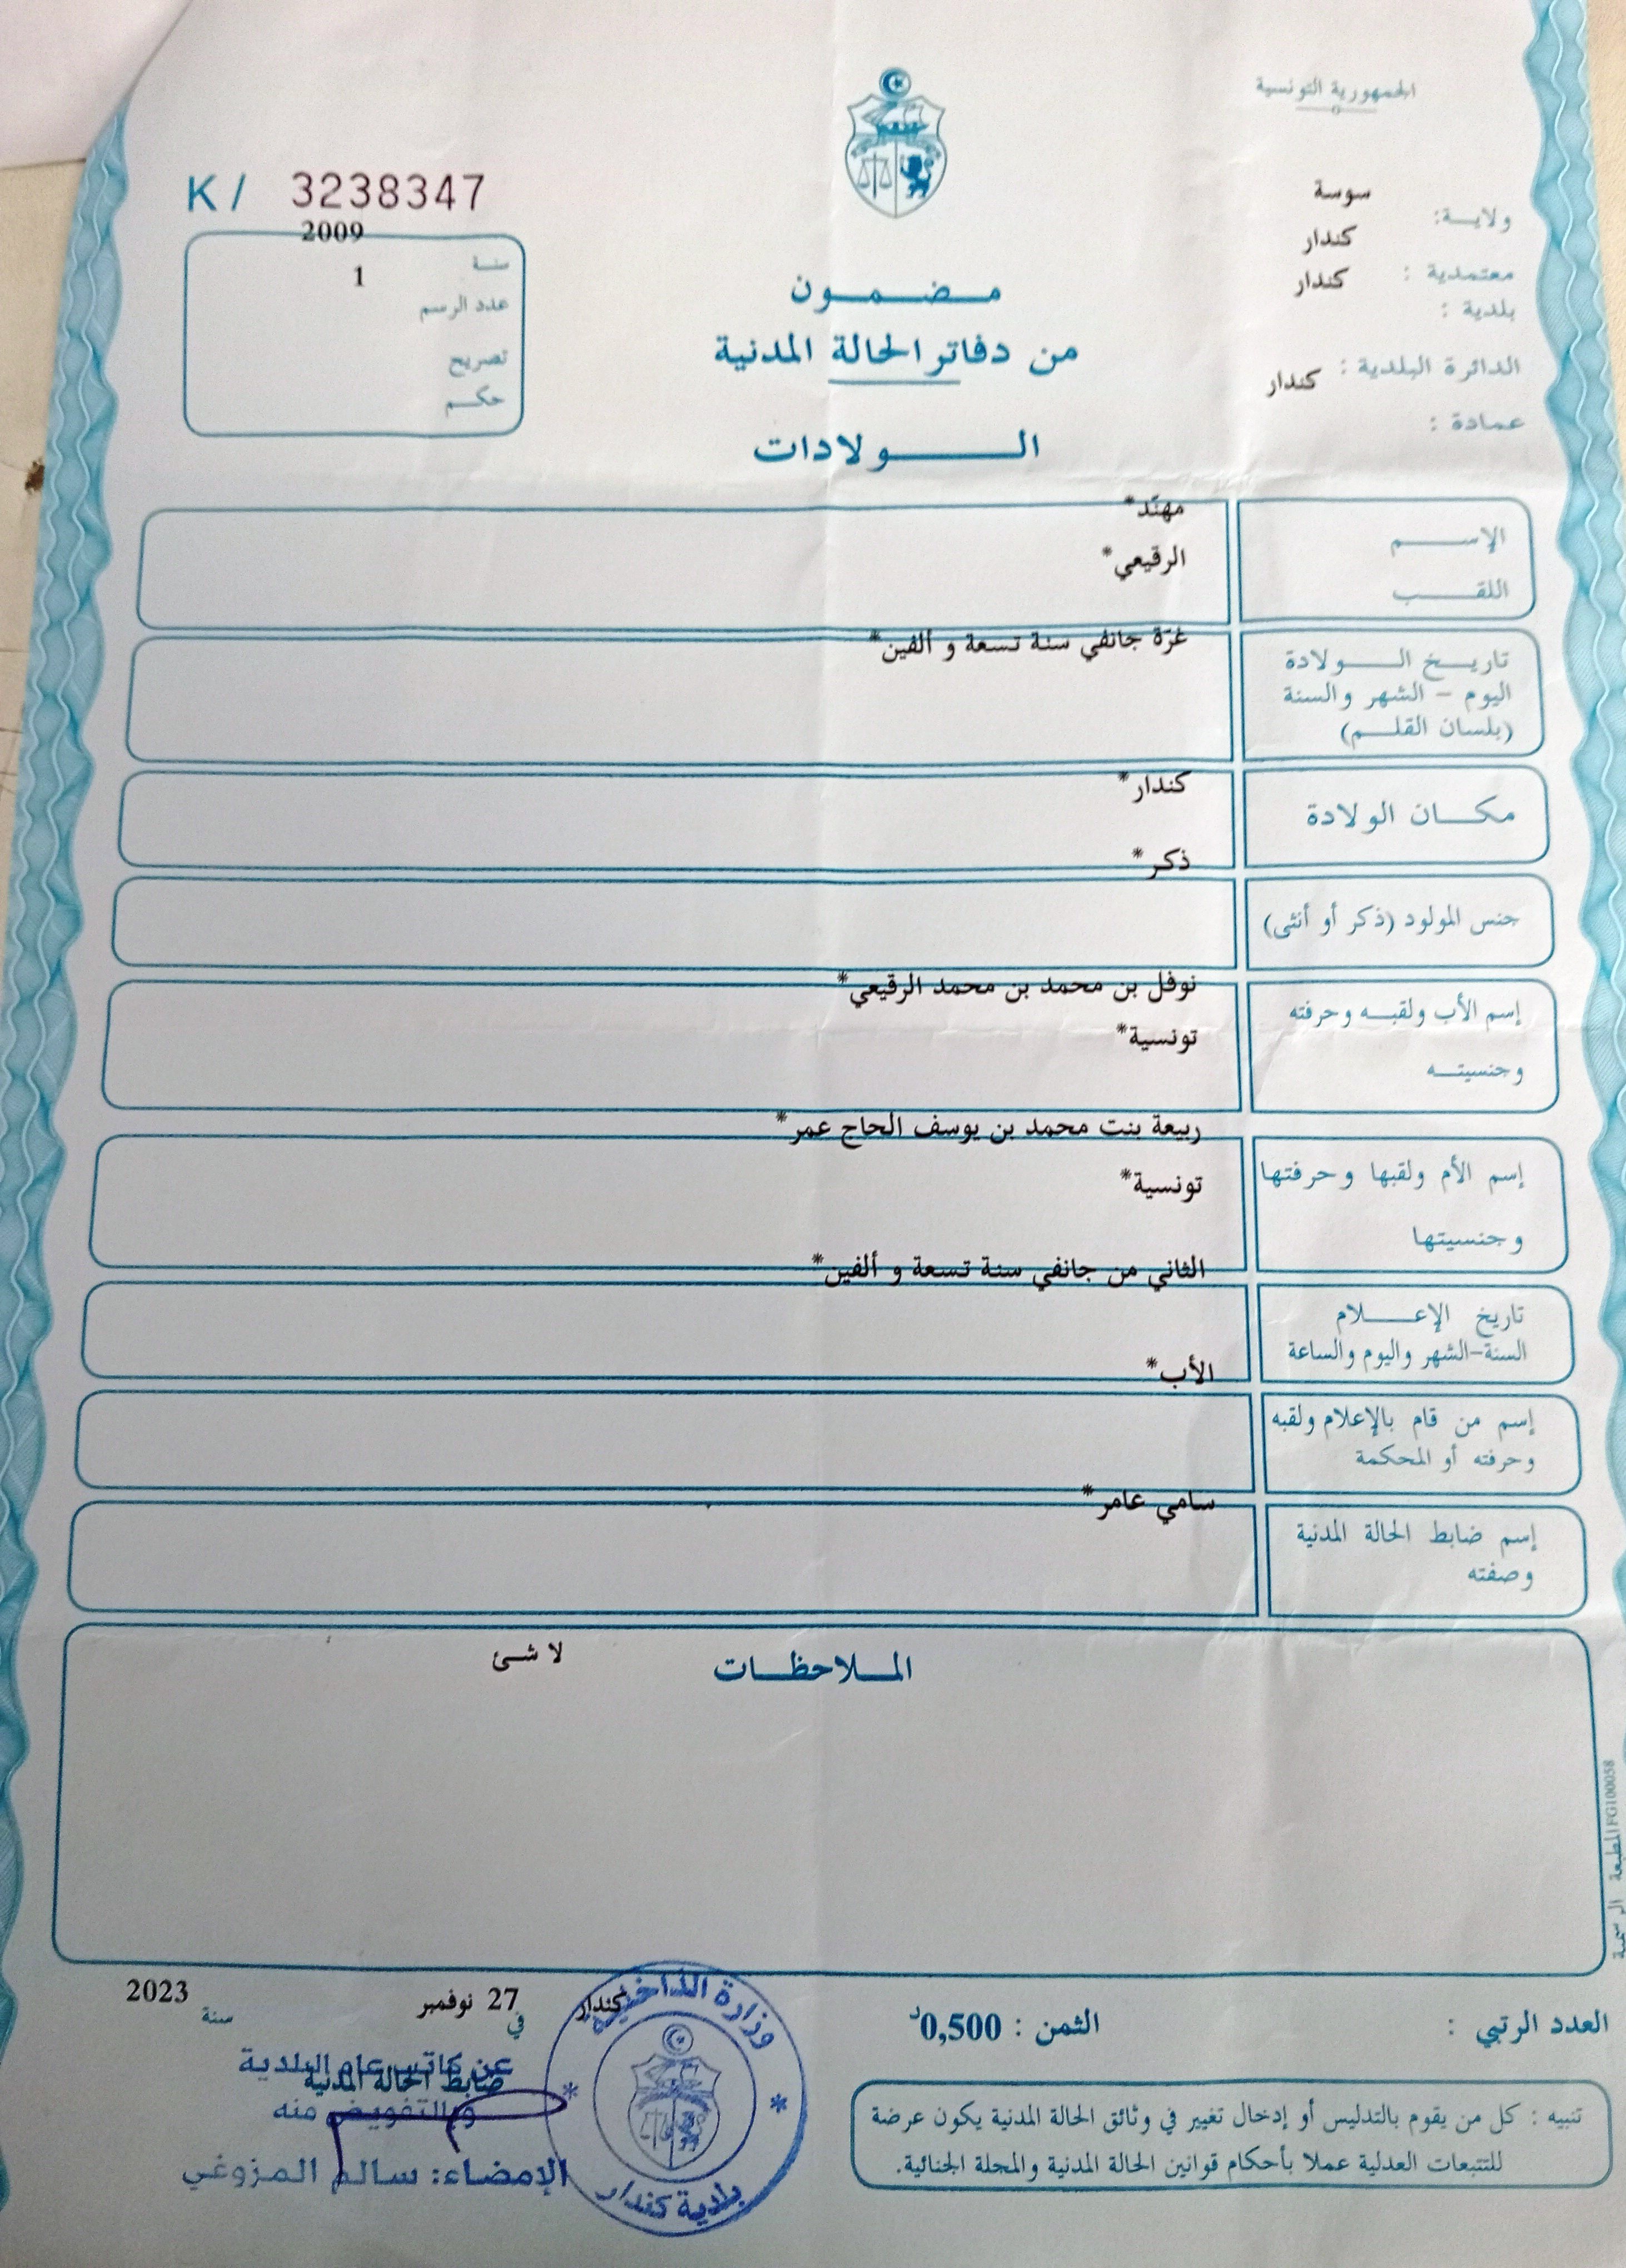 الجمهورية التونسية
ولايـة: سوسة
معتمدية : كندار
بلدية : كندار
الدائرة البلدية : كندار
عمادة :
K / 3238347
سنة 2009
عدد الرسم 1
تصريح
حكم
مضمون
من دفاتر الحالة المدنية
الولادات
الإسم مهنّد*
اللقب الرقيعي*
تاريخ الولادة غرّة جانفي سنة تسعة و ألفين*
اليوم - الشهر والسنة
(بلسان القلم)
مكان الولادة كندار*
جنس المولود (ذكر أو أنثى) ذكر*
إسم الأب ولقبه وحرفته نوفل بن محمد بن محمد الرقيعي*
وجنسيته تونسية*
إسم الأم ولقبها وحرفتها ربيعة بنت محمد بن يوسف الحاج عمر*
وجنسيتها تونسية*
تاريخ الإعلام الثاني من جانفي سنة تسعة و ألفين*
السنة-الشهر واليوم والساعة
إسم من قام بالإعلام ولقبه الأب*
وحرفته أو المحكمة
إسم ضابط الحالة المدنية سامي عامر*
وصفته
الملاحظات لا شئ
المطبعة الرسمية FG100058
العدد الرتبي :
الثمن : 0,500د
كندار في 27 نوفمبر سنة 2023
ضابط الحالة المدنية
عن كاتب عام البلدية
وبالتفويض منه
الإمضاء: سالم المزوغي
وزارة الداخلية
بلدية كندار
تنبيه : كل من يقوم بالتدليس أو إدخال تغيير في وثائق الحالة المدنية يكون عرضة
للتتبعات العدلية عملا بأحكام قوانين الحالة المدنية والمجلة الجنائية.